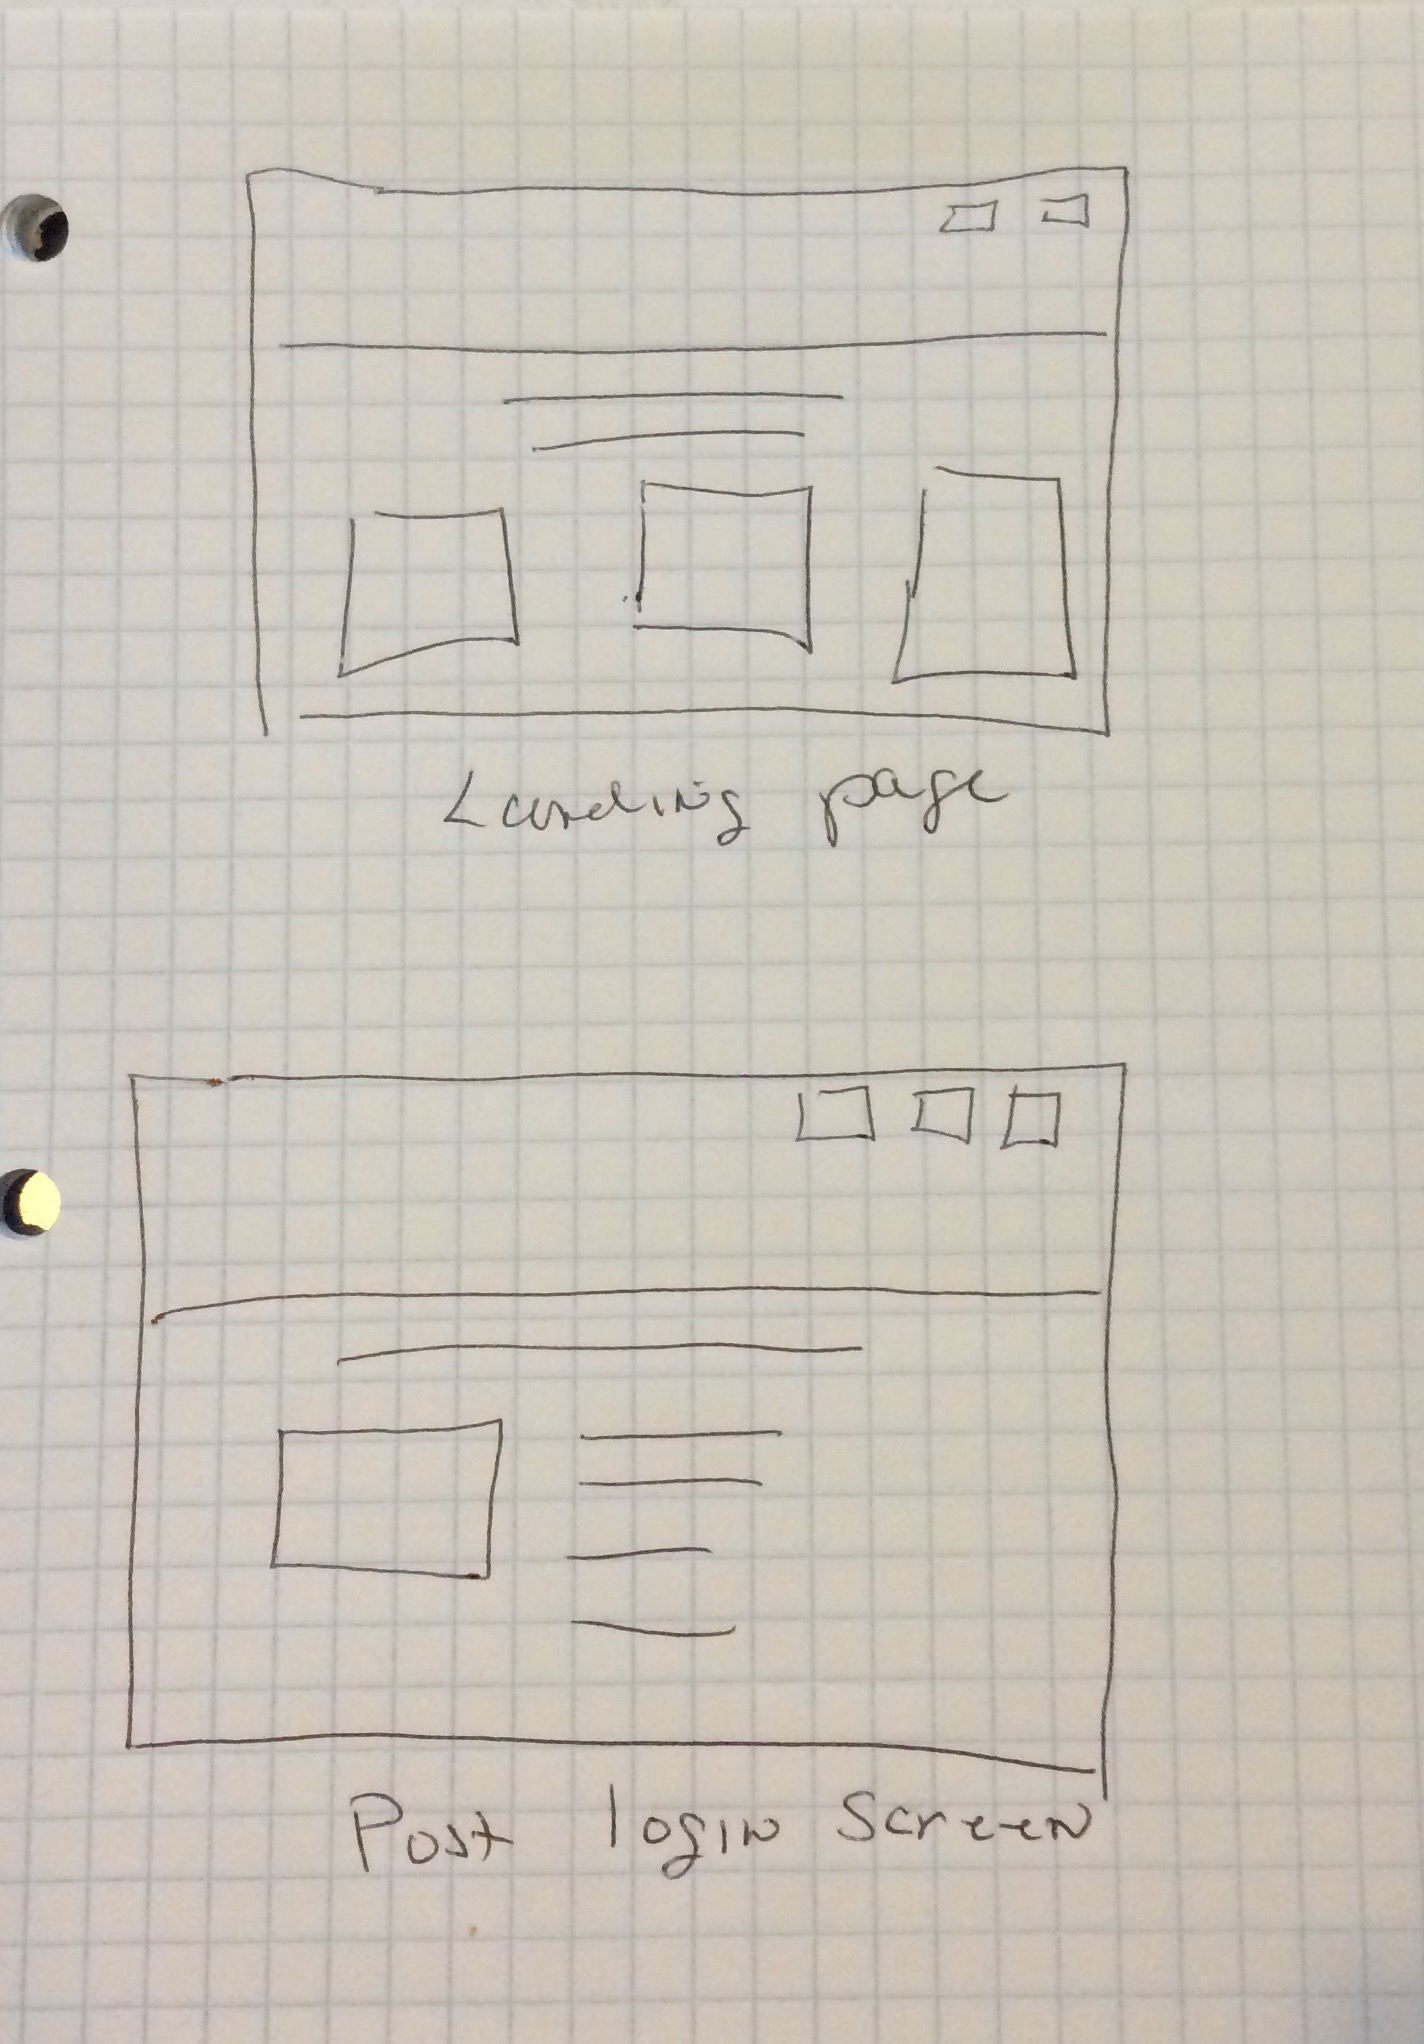 Landing page
Post login Screen